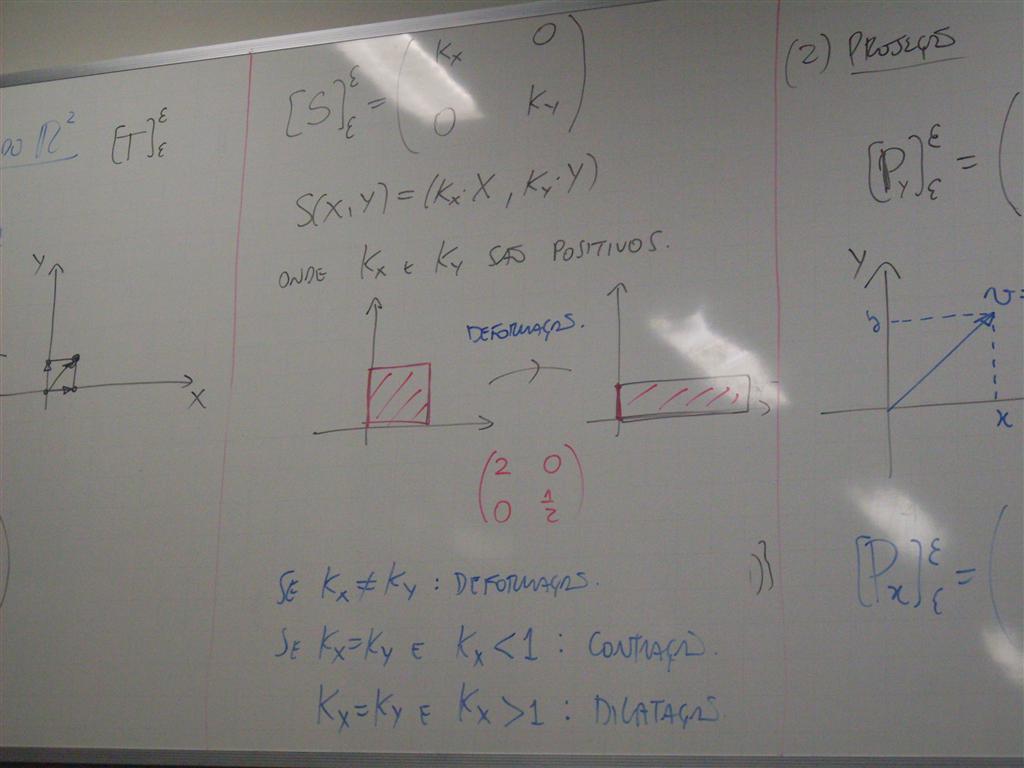 DO R² [T]ᵋᵋ
Y
X
[S]ᵋᵋ = (Kx 0
0 Ky)
S(X,Y) = (Kx·X, Ky·Y)
ONDE Kx E Ky SÃO POSITIVOS.
DEFORMAÇÃO.
(2 0
0 1/2)
SE Kx ≠ Ky : DEFORMAÇÃO.
SE Kx = Ky E Kx < 1 : CONTRAÇÃO.
Kx = Ky E Kx > 1 : DILATAÇÃO.
(2) PROJEÇÃO
[Py]ᵋᵋ = (
Y
v=
x
[Px]ᵋᵋ = (